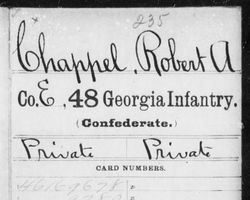 235
Chappel, Robert A
Co. E, 48 Georgia Infantry.
(Confederate.)
Private Private
CARD NUMBERS.